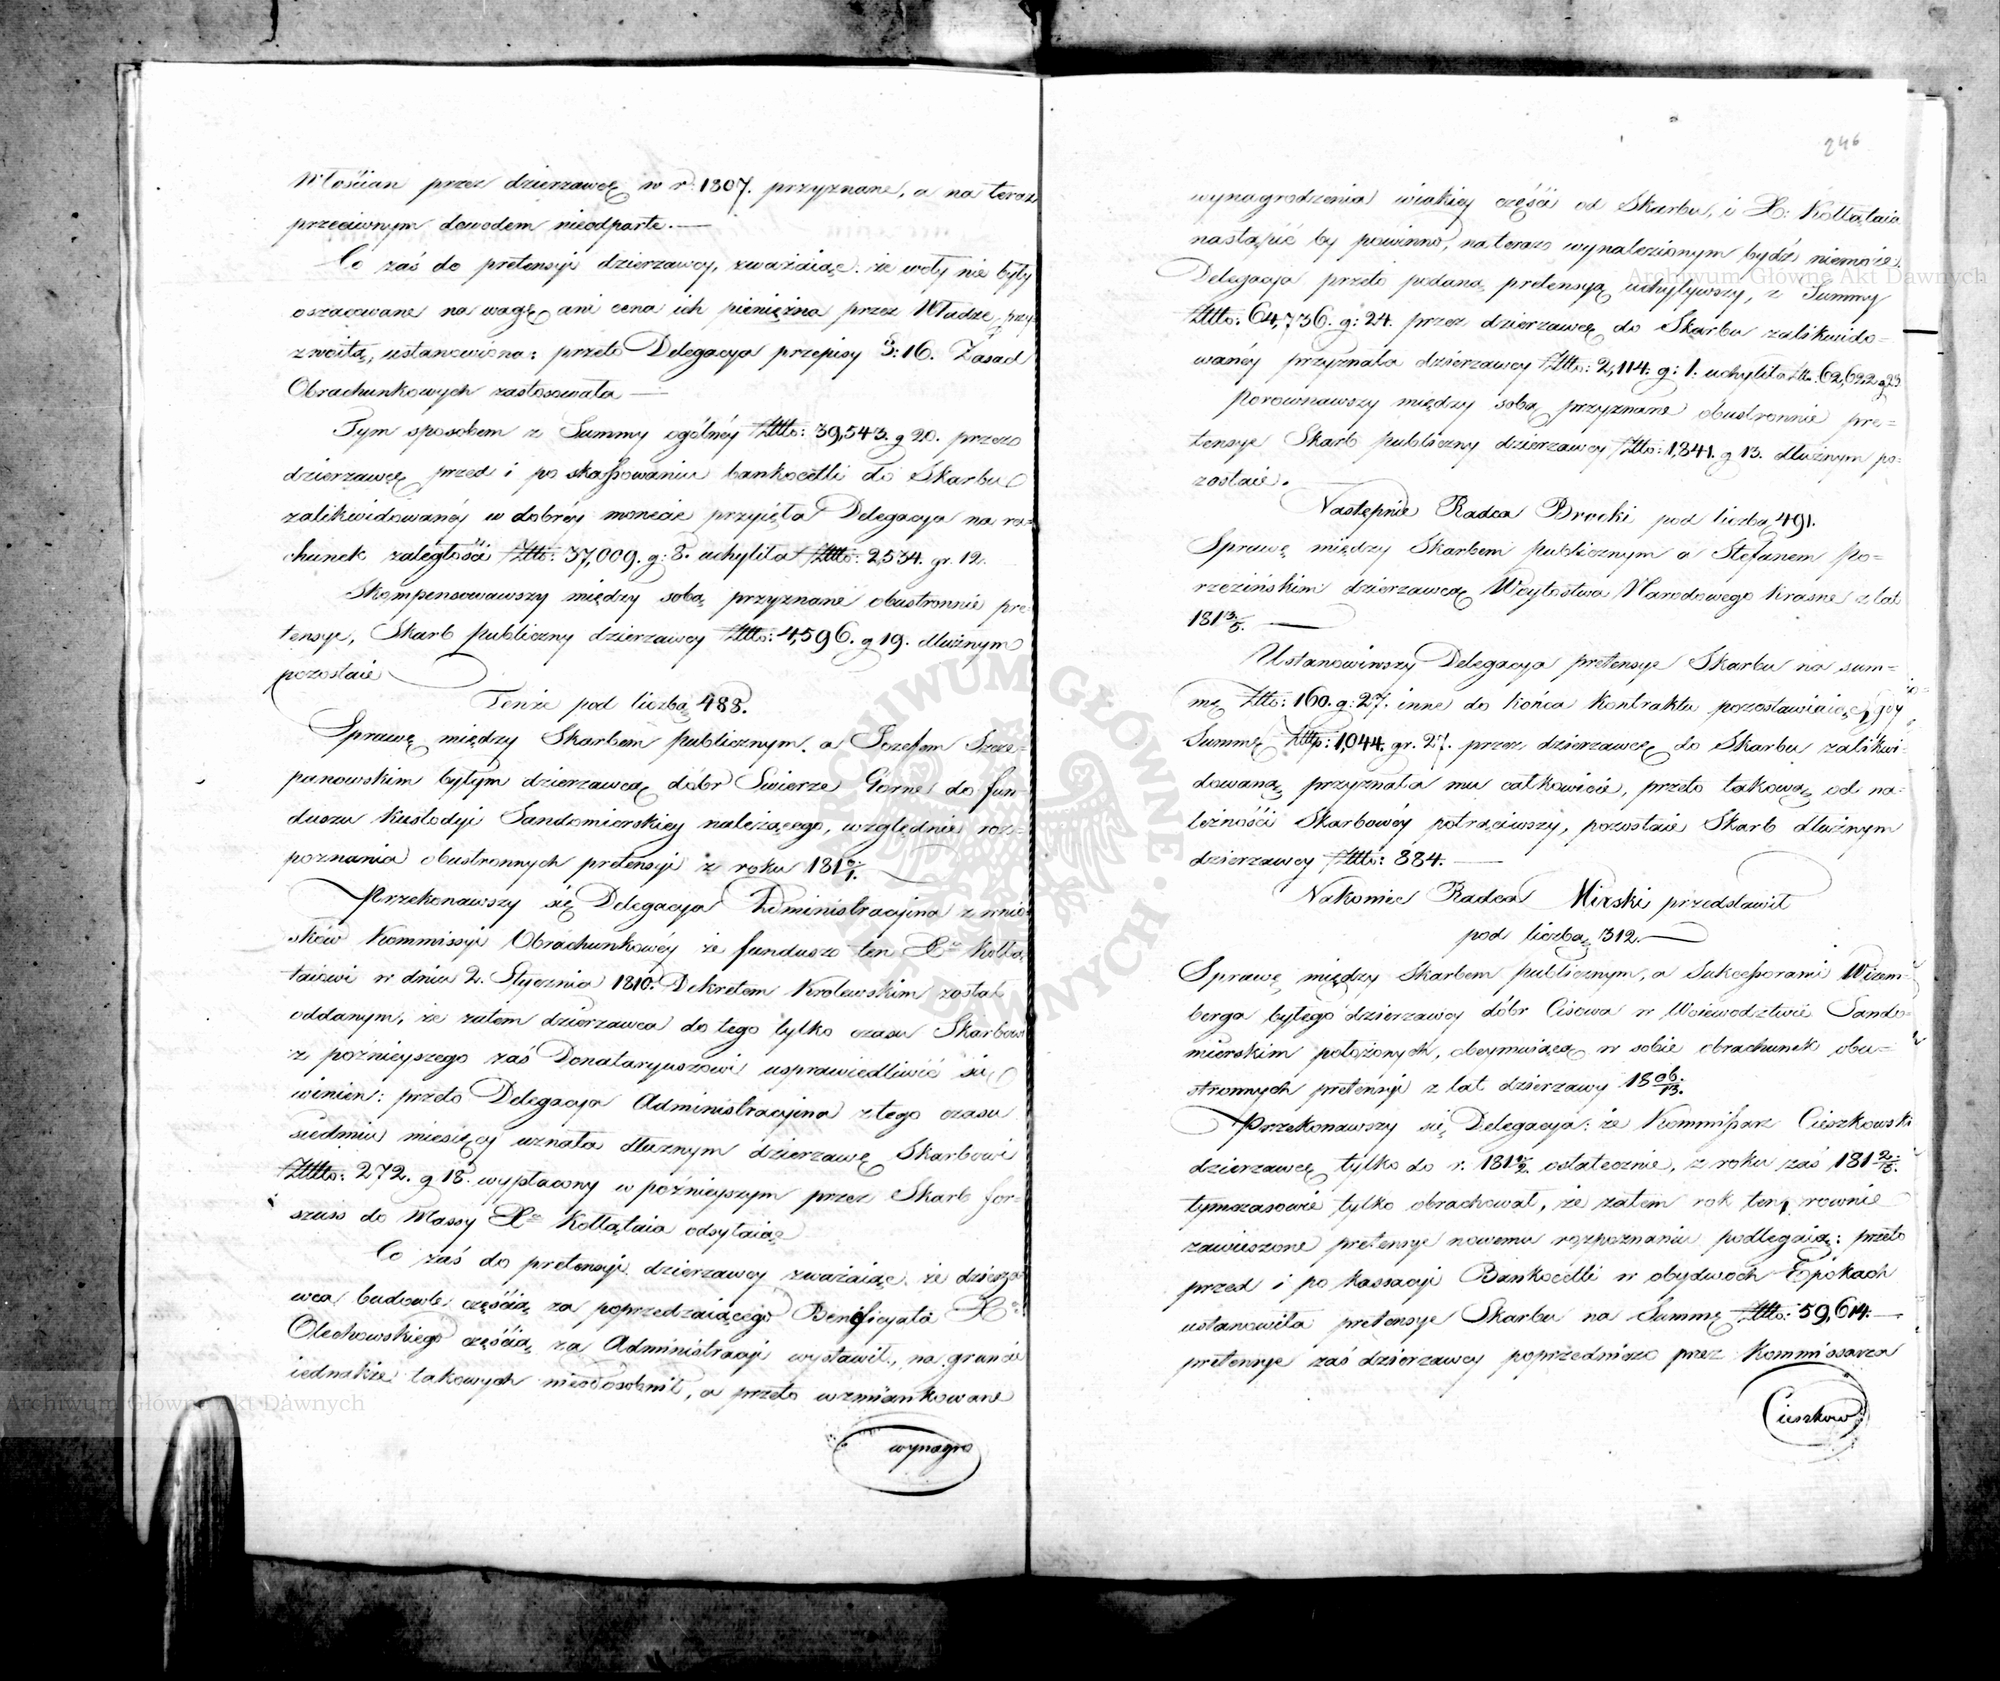 Włościan przez dzierzawcę w r. 1807. przyznane, a na teraz
przeciwnym dowodem nieodparte.—
Co zaś do pretensyi dzierzawcy, zważaiąc: że woły nie były
oszacowane na wagę ani cena ich pieniężna przez Władzę przy-
zwoitą, ustanowiona: przeto Delegacya przepisy §: 16. Zasad
Obrachunkowych zastosowała —
Tym sposobem z Summy ogólnéy Złlto: 39,543. g 20. przez
dzierzawcę przed i po skassowaniu bankocetli do Skarbu
zalikwidowanéy w dobrey monecie przyięła Delegacya na ra-
chunek zaległości Złlto: 37,009. g: 8. uchyliła Złlto: 2,534. gr. 12.
Skompensowawszy między sobą przyznane obustronnie pre
tensye, Skarb publiczny dzierzawcy Złlto: 4,596. g 19. dłużnym
pozostaie
Tenże pod liczbą 488.
Sprawę między Skarbem publicznym, a Jozefem Szcze-
panowskim byłym dzierzawcą dóbr Swierze Górne do fun-
duszu Kustodyi Sandomierskiey należącego, względnie roz-
poznania obustronnych pretensyi z roku 181 0/1.
Przekonawszy się Delegacya Administracyina z wnio-
sków Kommissyi Obrachunkowéy że fundusz ten X. Kołłą
taiowi w dniu 2. Stycznia 1810. Dekretem Krolewskim został
oddanym, że zatem dzierzawca do tego tylko czasu Skarbowi
z poźnieyszego zaś Donataryuszowi usprawiedliwić się
winien: przeto Delegacya Administracyina z tego czasu
siedmiu miesięcy uznała dłużnym dzierzawcę Skarbowi
Złlto: 272. g 18. wypłacony w poźnieyszym przez Skarb for-
szuss do Massy X. Kołłątaia odsyłaiąc
Co zaś do pretensyi dzierzawcy zważaiąc, że dzierza
wca budowle częścią za poprzedzaiącego Beneficyata X.
Olechowskiego częścią za Administracyi wystawił, na gruncie
iednakże takowych nieodosobnił, a przeto wzmiankowane
wynagro
246
wynagrodzenia wiakiey części od Skarbu, i X: Kołłątaia
nastąpić by powinno, na teraz wynalezionym bydź niemoże.
Delegacya przeto podaną pretensyą uchyliwszy, z Summy
Złlto: 64,736. g: 24. przez dzierzawcę do Skarbu zalikwido-
wanéy przyznała dzierzawcy Złlto: 2,114. g: 1. uchyliła Złt. 62,622 g 23
Porownawszy między sobą przyznane obustronnie pre-
tensye Skarb publiczny dzierzawcy Złlto: 1,841. g 13. dłużnym po-
zostaie.
Następnie Radca Brocki pod liczbą 491.
Sprawę między Skarbem publicznym a Stefanem Po-
rzezińskim dzierzawcą Woytostwa Narodowego Krasne z lat
181 3/5.
Ustanowiwszy Delegacya pretensye Skarbu na sum-
mę Złlto: 160. g: 27. inne do końca kontraktu pozostawiaiąc, gdy
Summę Złlto: 1,044. gr. 27. przez dzierzawcę do Skarbu zalikwi-
dowaną przyznała mu całkowicie, przeto takową od na-
leżności Skarbowéy potrąciwszy, pozostaie Skarb dłużnym
dzierzawcy Złlto: 884.
Nakoniec Radca Mirski przedstawił
pod liczbą 312.
Sprawę między Skarbem publicznym, a Sukcessorami Wizem-
berga byłego dzierzawcy dóbr Cisowa w Woiewodztwie Sando-
mierskim położonych, obeymuiącą w sobie obrachunek obu-
stronnych pretensyi z lat dzierzawy 18 06/13.
Przekonawszy się Delegacya: że Kommissarz Cieszkowski
dzierzawcę tylko do r. 181 1/2. ostatecznie, z roku zaś 181 2/3.
tymczasowie tylko obrachował, że zatem rok ten, rownie
zawieszone pretensye nowemu rozpoznaniu podlegaią: przeto
przed i po kassacyi Bankocetli w obydwoch Epokach
ustanowiła pretensye Skarbu na Summę Złlto: 59,614.—
pretensye zaś dzierzawcy poprzedniczo przez Kommissarza
Cieszkow
Archiwum Główne Akt Dawnych
Archiwum Główne Akt Dawnych
ARCHIWUM GŁÓWNE AKT DAWNYCH